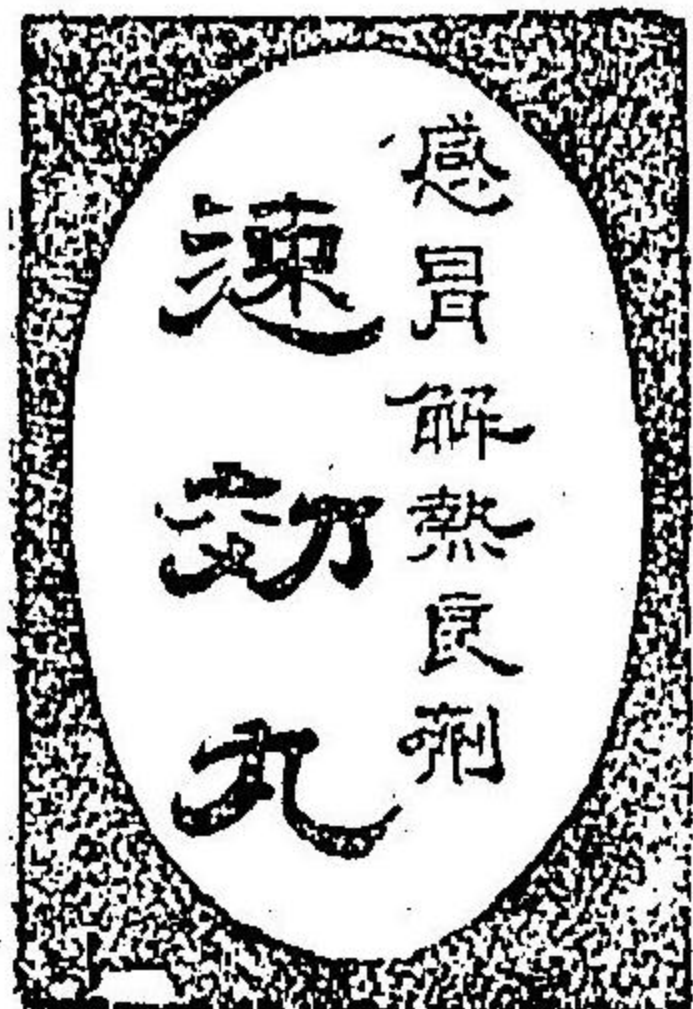 感冒解熱良剤
速効丸